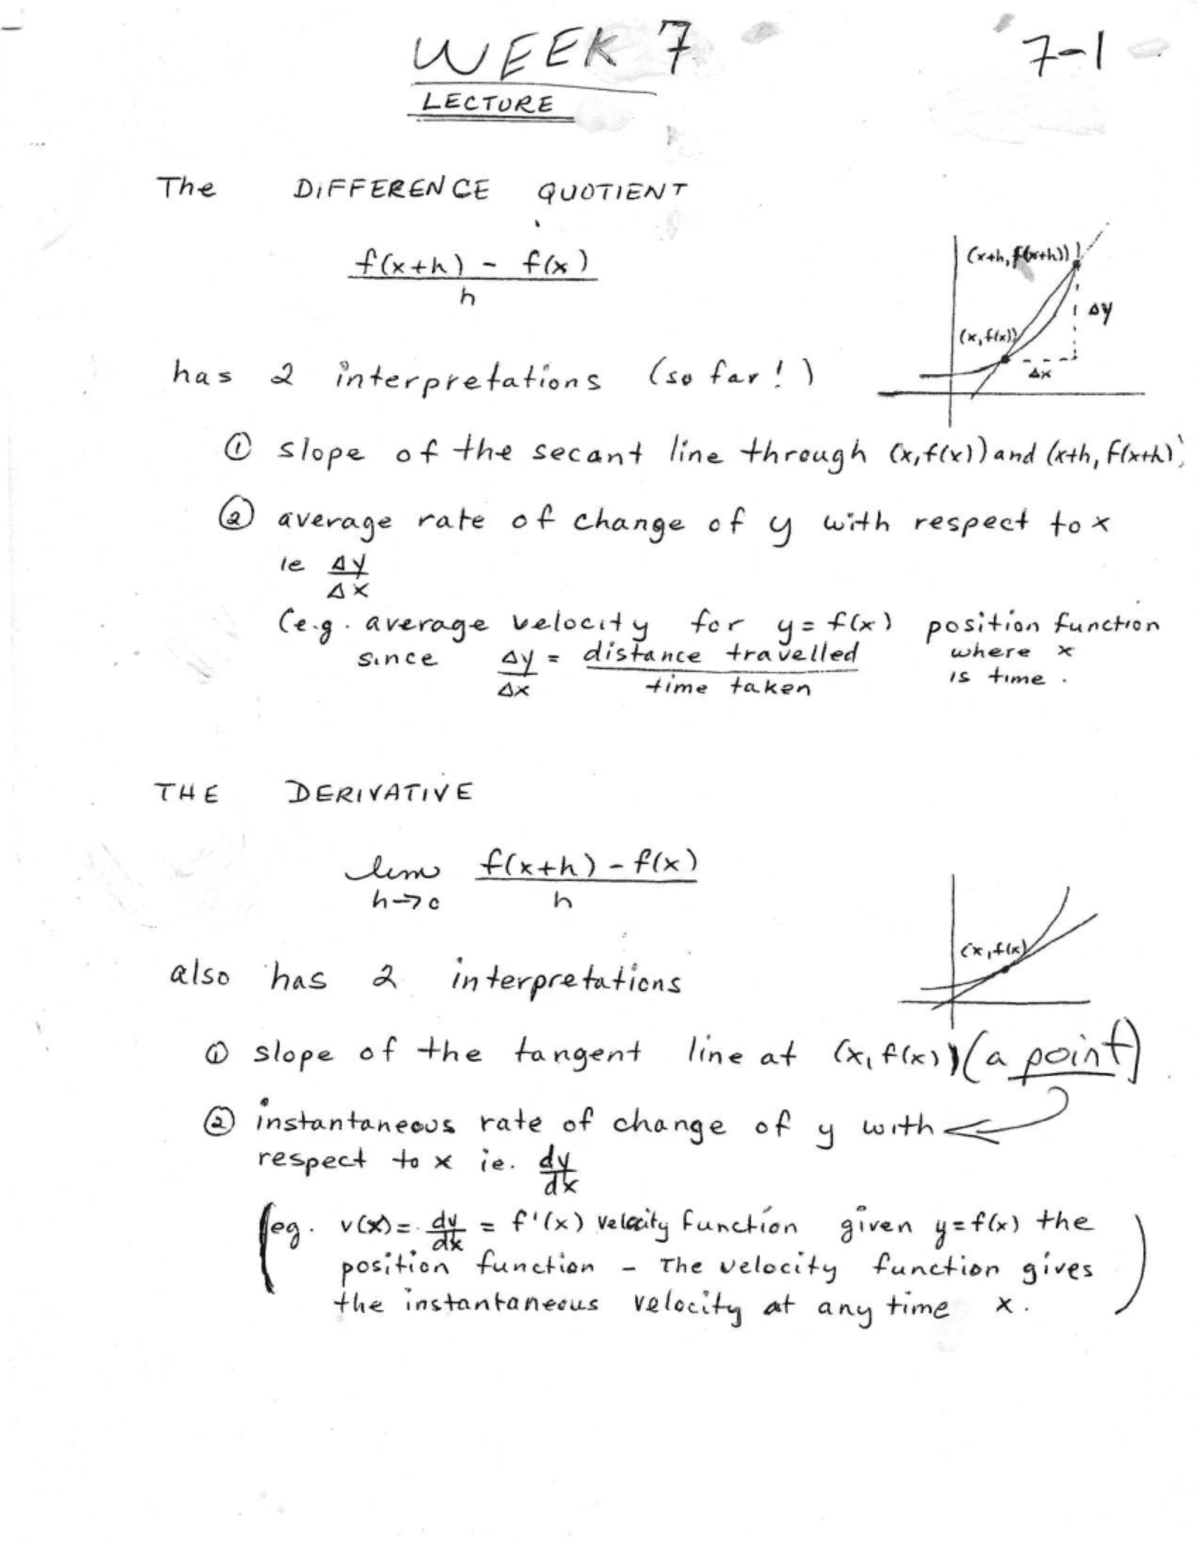 WEEK 7
7-1
LECTURE
The DIFFERENCE QUOTIENT
f(x+h) - f(x)
h
(x+h, f(x+h))
Δy
(x, f(x))
Δx
has 2 interpretations (so far!)
① slope of the secant line through (x, f(x)) and (x+h, f(x+h))
② average rate of change of y with respect to x
ie Δy
Δx
(e.g. average velocity for y = f(x) position function
since Δy = distance travelled where x
Δx time taken is time.
THE DERIVATIVE
lim f(x+h) - f(x)
h→0 h
(x, f(x)
also has 2 interpretations
① slope of the tangent line at (x, f(x)) (a point)
② instantaneous rate of change of y with
respect to x ie. dy
dx
(eg. v(x) = dy = f'(x) velocity function given y = f(x) the
dx
position function - The velocity function gives
the instantaneous velocity at any time x. )